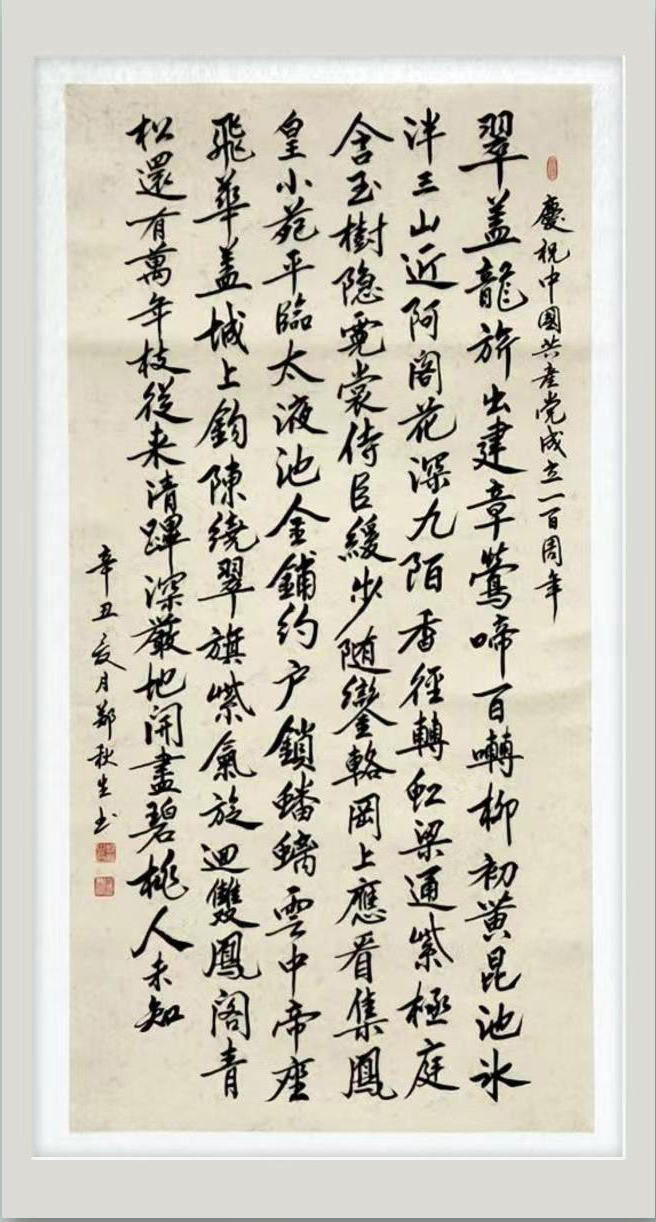 慶祝中國共產党成立一百周年
翠盖龍旂出建章鶯啼百囀柳初黃昆池氷
泮三山近阿阁花深九陌香徑轉虹梁通紫極庭
含玉樹隐霓裳侍臣緩步随鑾輅岡上應看集鳳
皇小苑平臨太液池金鋪约户鎖蟠螭雲中帝座
飛華盖城上鈎陳繞翠旗紫氣旋迴雙鳳阁青
松還有萬年枝從来清蹕深嚴地開盡碧桃人未知
辛丑夏月鄭秋生书